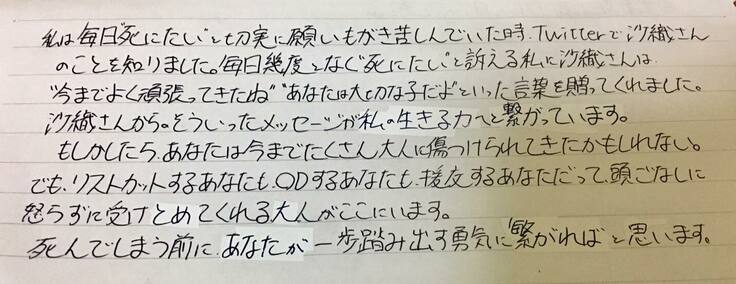 私は毎日“死にたい”と切実に願いもがき苦しんでいた時、Twitterで沙織さん
のことを知りました。毎日幾度となく“死にたい”と訴える私に沙織さんは、
“今までよく頑張ってきたね”“あなたは大切な子だよ”といった言葉を贈ってくれました。
沙織さんから。そういったメッセージが私の生きる力へと繋がっています。
もしかしたら、あなたは今までたくさん大人に傷つけられてきたかもしれない。
でも、リストカットするあなたも、ODするあなたも、援交するあなただって、頭ごなしに
怒らずに受けとめてくれる大人がここにいます。
死んでしまう前に、あなたが一歩踏み出す勇気に繋がれば と思います。